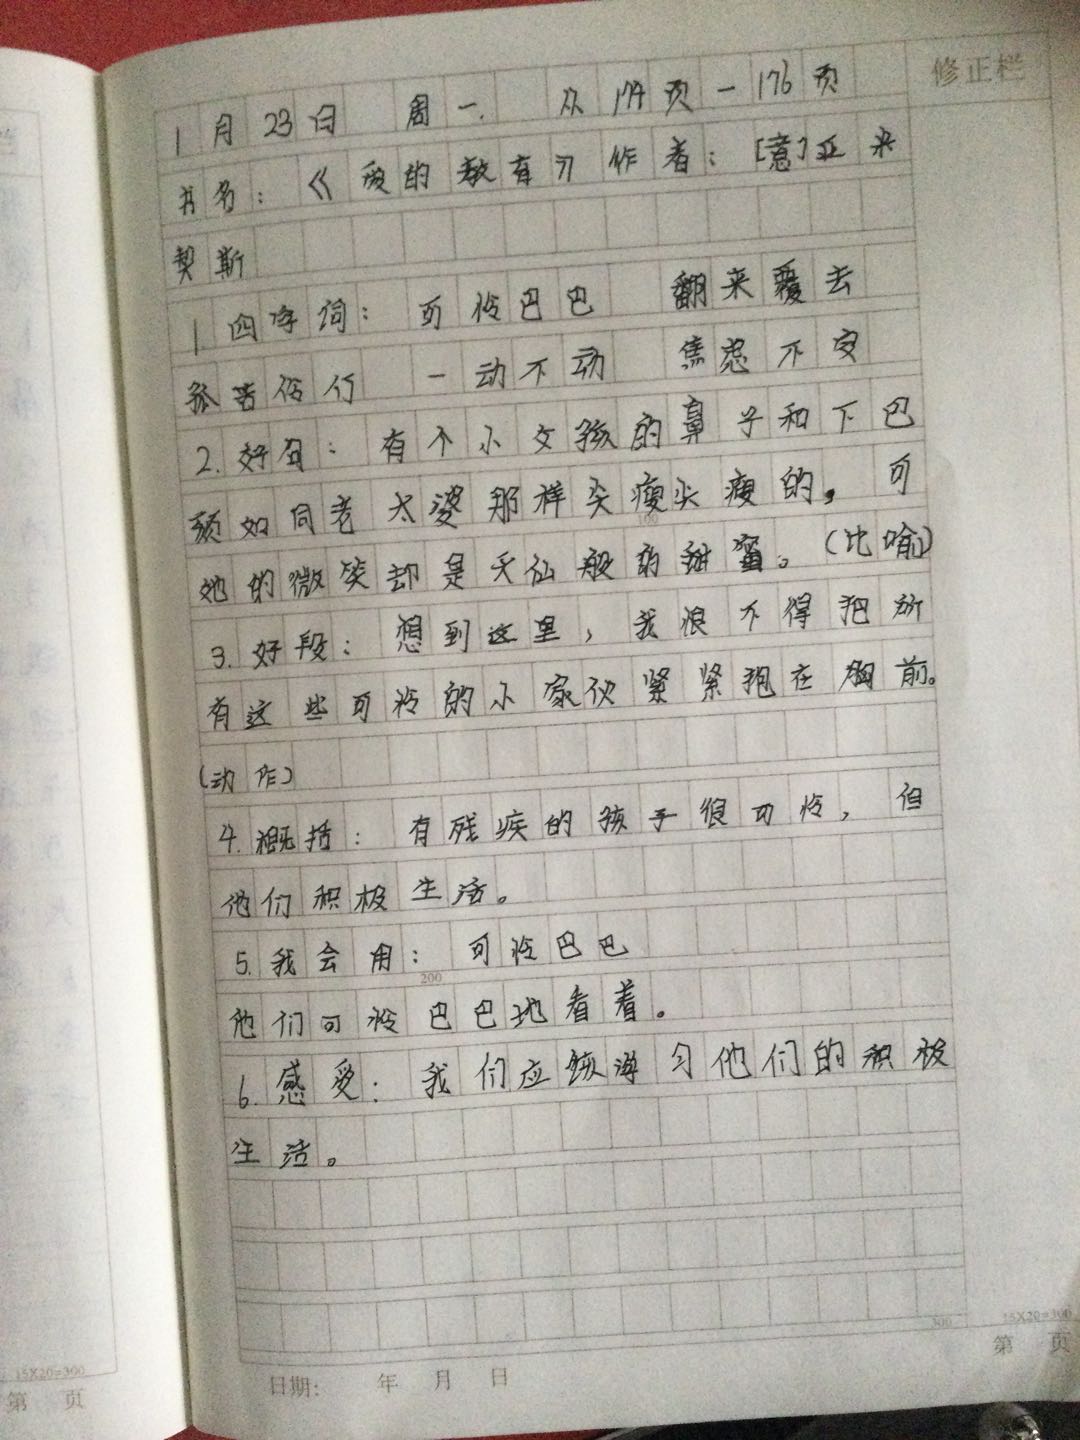 修正栏
1月23日 周一. 从174页－176页
书名：《爱的教育》作者：[意]亚米
契斯
1四字词：可怜巴巴 翻来覆去
孤苦伶仃 一动不动 焦虑不安
2.好句：有个小女孩的鼻子和下巴
颏如同老太婆那样尖瘦尖瘦的，可
她的微笑却是天仙般的甜蜜。（比喻）
3.好段：想到这里，我恨不得把所
有这些可怜的小家伙紧紧抱在胸前。
（动作）
4.概括：有残疾的孩子很可怜，但
他们积极生活。
5.我会用：可怜巴巴
他们可怜巴巴地看着。
6.感受：我们应该学习他们的积极
生活。
100
200
300
15X20=300
15X20=300
日期： 年 月 日
第 页
第 页